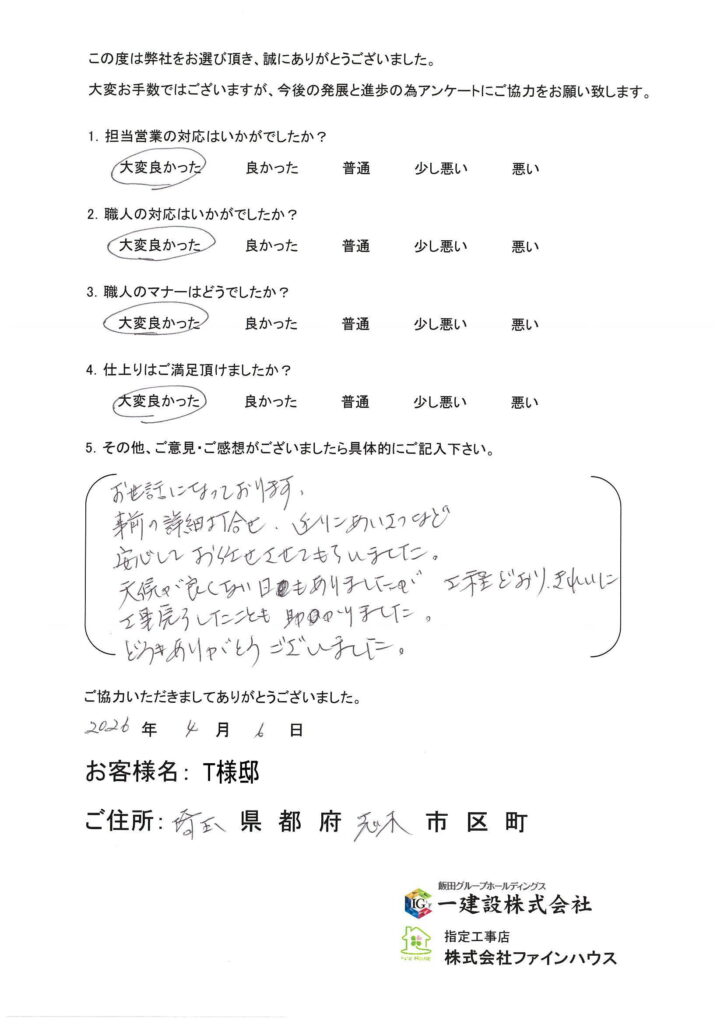 この度は弊社をお選び頂き、誠にありがとうございました。
大変お手数ではございますが、今後の発展と進歩の為アンケートにご協力をお願い致します。
1. 担当営業の対応はいかがでしたか？
大変良かった 良かった 普通 少し悪い 悪い
2. 職人の対応はいかがでしたか？
大変良かった 良かった 普通 少し悪い 悪い
3. 職人のマナーはどうでしたか？
大変良かった 良かった 普通 少し悪い 悪い
4. 仕上りはご満足頂けましたか？
大変良かった 良かった 普通 少し悪い 悪い
5. その他、ご意見・ご感想がございましたら具体的にご記入下さい。
お世話になっております。
事前の詳細打合せ、近リンあいさつなど
安心して お任せさせてもらいました。
天候が良くない日もありましたが 工程どおり、きれいに
工事完了したことも 助かりました。
どうもありがとうございました。
ご協力いただきましてありがとうございました。
2026 年 4 月 6 日
お客様名： T様邸
ご住所： 埼玉 県 都 府 志木 市 区 町
飯田グループホールディングス
IG 一建設株式会社
指定工事店
株式会社ファインハウス